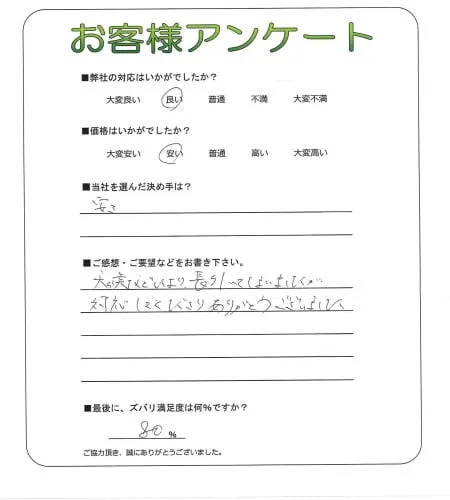 お客様アンケート
■弊社の対応はいかがでしたか？
大変良い 良い 普通 不満 大変不満
■価格はいかがでしたか？
大変安い 安い 普通 高い 大変高い
■当社を選んだ決め手は？
安さ
■ご感想・ご要望などをお書き下さい。
天候などにより、長引いてしまいましたが
対応してくださりありがとうございました
■最後に、ズバリ満足度は何％ですか？
80 %
ご協力頂き、誠にありがとうございました。